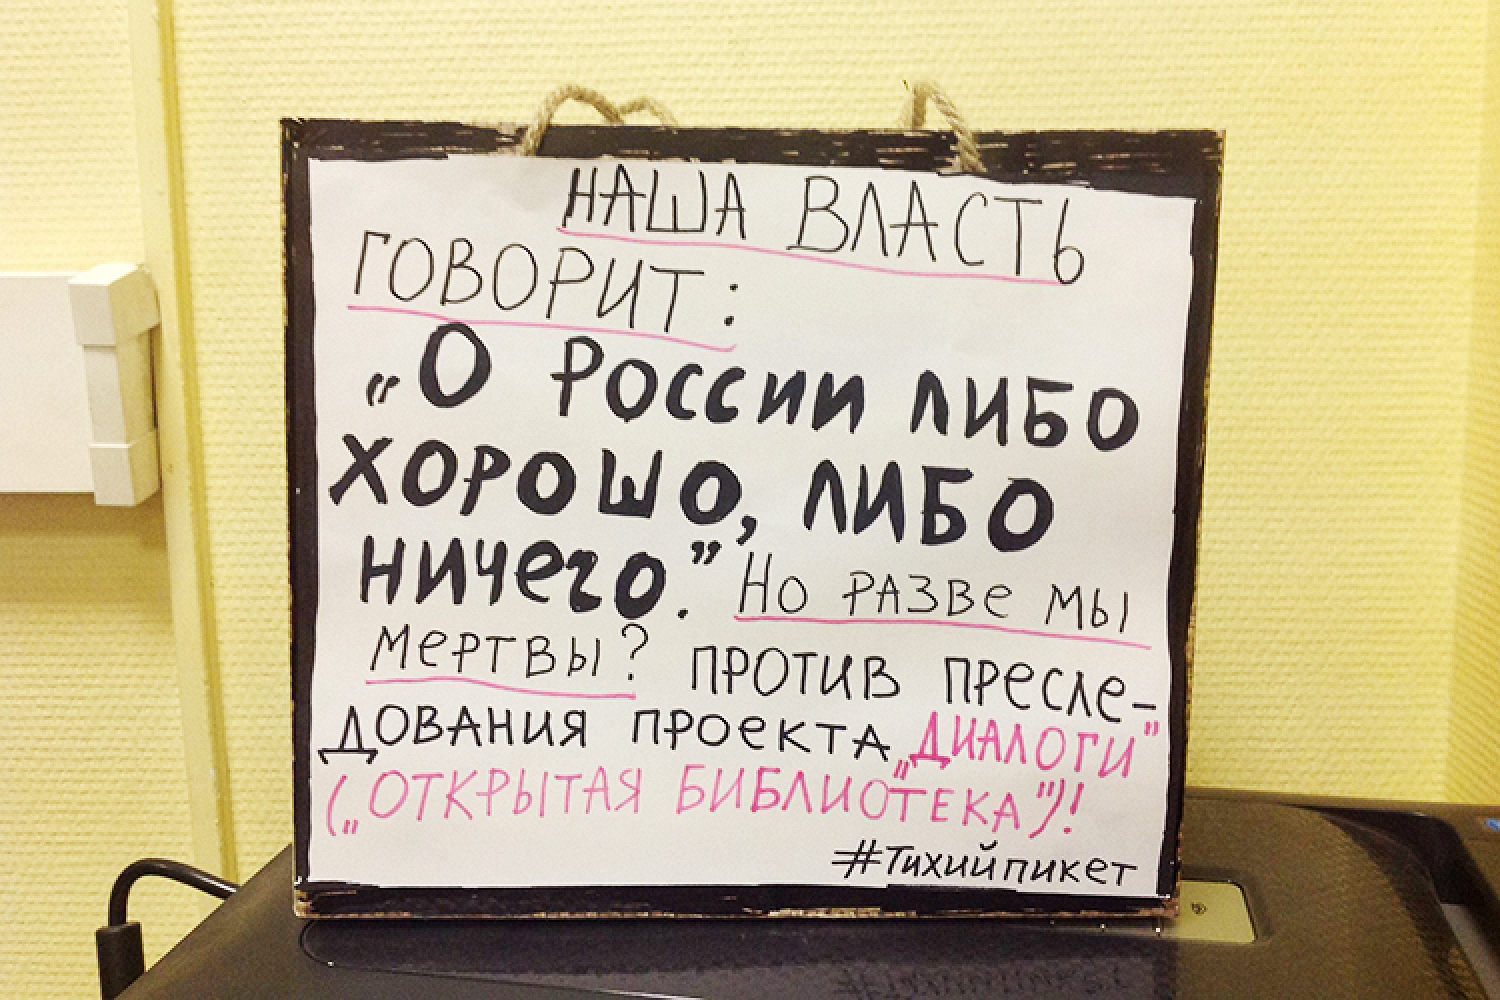 НАША ВЛАСТЬ
ГОВОРИТ:
„О РОССИИ ЛИБО
ХОРОШО, ЛИБО
НИЧЕГО.” НО РАЗВЕ МЫ
МЕРТВЫ? ПРОТИВ ПРЕСЛЕ-
ДОВАНИЯ ПРОЕКТА „ДИАЛОГИ”
(„ОТКРЫТАЯ БИБЛИОТЕКА”)!
#Тихийпикет